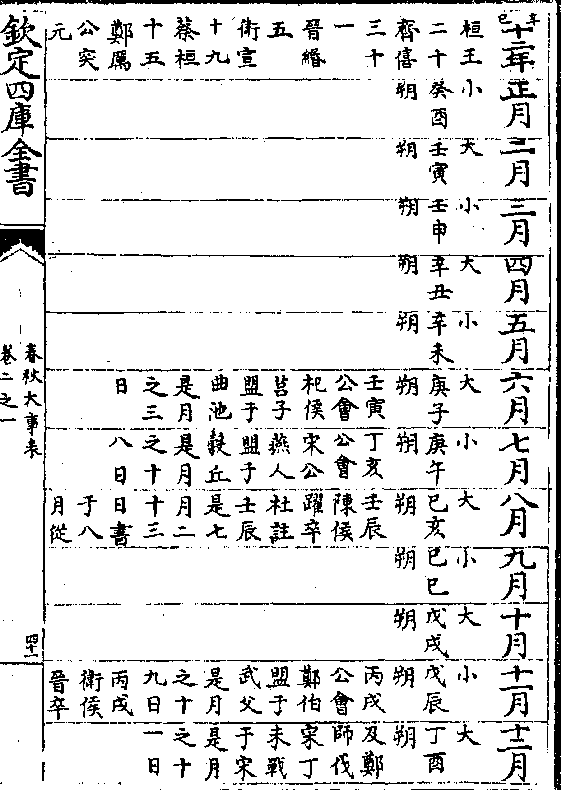 辛巳
十二年
桓王
二十
齊僖
三十
一
晉緡
五
衛宣
十九
蔡桓
十五
鄭厲
公突
元
正月
小
癸酉
朔
二月
大
壬寅
朔
三月
小
壬申
朔
四月
大
辛丑
朔
五月
小
辛未
朔
六月
大
庚子
朔
壬寅
公會
杞侯
莒子
盟于
曲池
是月
之三
日
七月
小
庚午
朔
丁亥
公會
宋公
燕人
盟于
穀丘
是月
之十
八日
八月
大
己亥
朔
壬辰
陳侯
躍卒
杜註
壬辰
是七
月二
十三
日書
于八
月從
九月
小
己巳
朔
十月
大
戊戌
朔
十一月
小
戊辰
朔
丙戌
公會
鄭伯
盟于
武父
是月
之十
九日
丙戌
衛侯
晉卒
十二月
大
丁酉
朔
及鄭
師伐
宋丁
未戰
于宋
是月
之十
一日
欽定四庫全書
春秋大事表
卷二之一
四十一